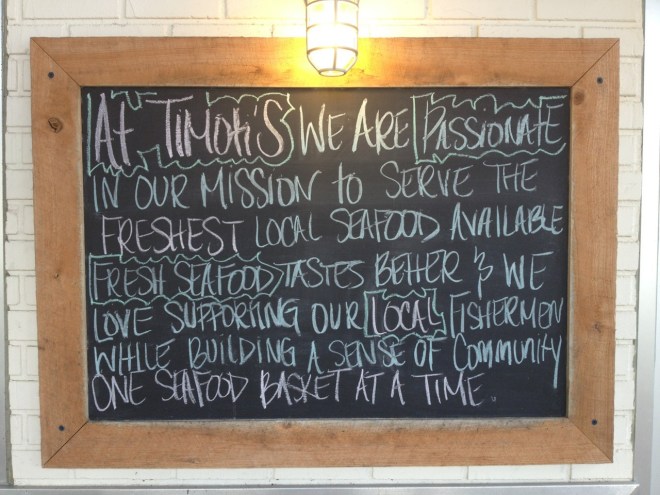 At TIMOti'S WE ARE PASSIONATE
IN OUR MISSION to SERVE THE
FRESHEST LOCAL SEAFOOD AVAILABLE
FRESH SEAFOOD TASTES BETTER & WE
LOVE SUPPORTING OUR LOCAL FISHERMEN
WHILE BUILDING A SENSE OF Community
ONE SEAFOOD BASKET AT A TIME.